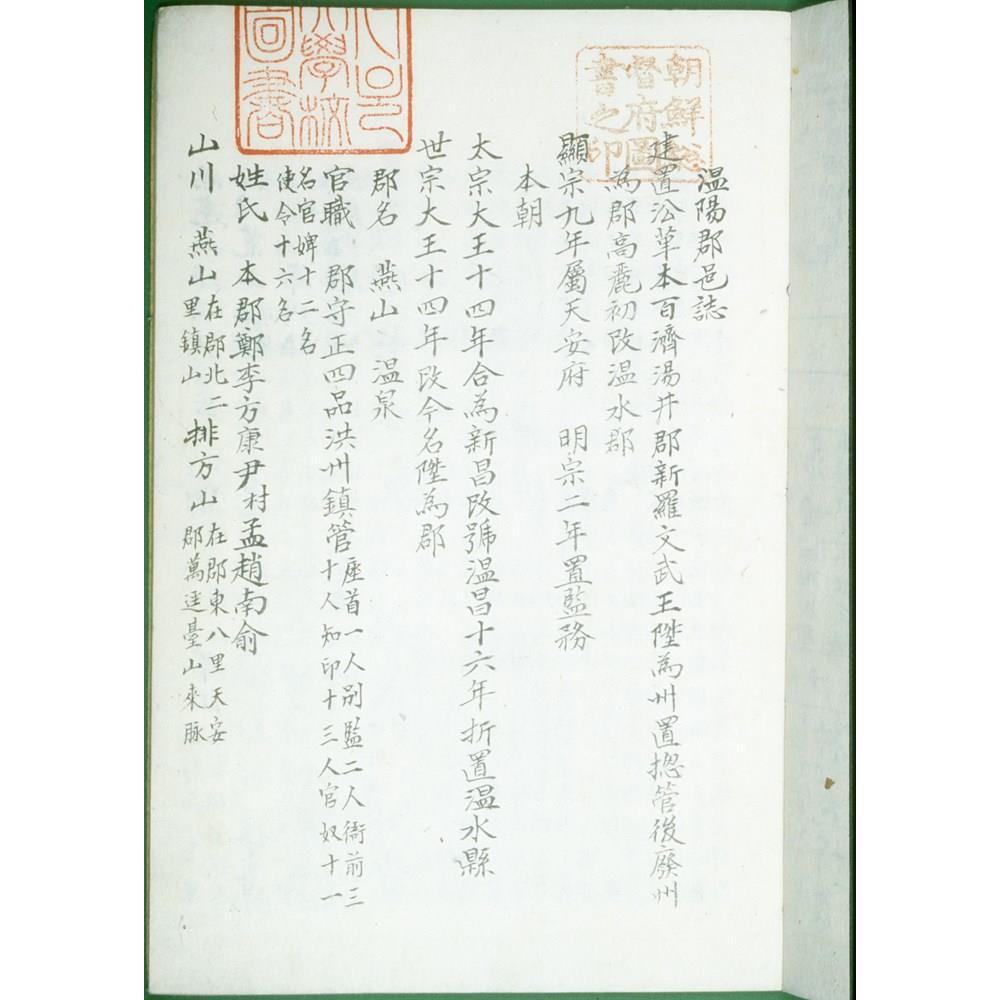 溫陽郡邑誌
建置沿革本百濟湯井郡新羅文武王陞為州置摠管後廢州
為郡高麗初改溫水郡
顯宗九年屬天安府 明宗二年置監務
本朝
太宗大王十四年合為新昌改號溫昌十六年折置溫水縣
世宗大王十四年改今名陞為郡
郡名 燕山 溫泉
官職 郡守正四品洪州鎮管座首一人別監二人衙前三
十人知印十三人官奴十一
名官婢十二名
使令十六名
姓氏 本郡鄭李方康尹村孟趙南俞
山川 燕山在郡北二
里鎮山 排方山在郡東八里天安
郡萬運臺山來脉
朝鮮総
督府圖
書之印
大學校
圖書